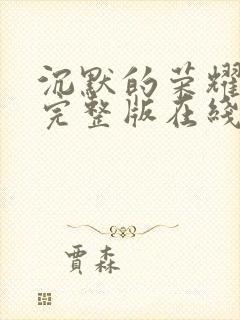 沉默的荣耀
完整版在綫
賈森